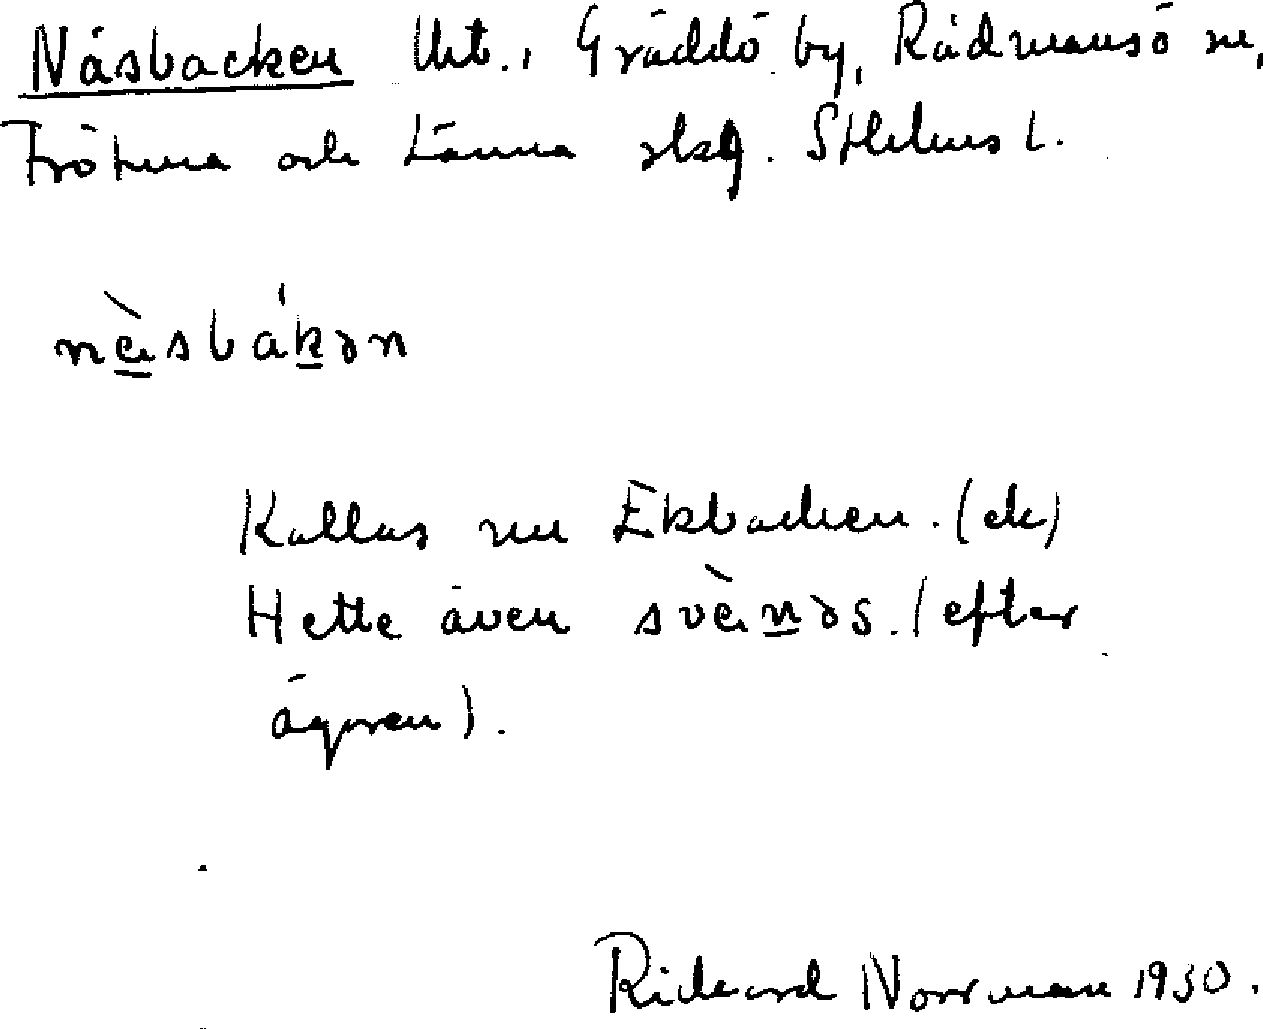 Näsbacken Uht., Gräddö by, Rådmansö sn,
Frötuna och Länna skg. Sthlms l.
nèsbákən
Kallas nu Ekbacken. (ek)
Hette även svènəs. (efter
ägaren).
Rickard Norrman 1930.